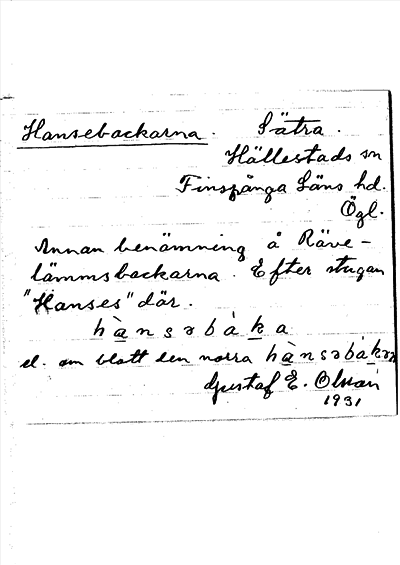 Hansebackarna. Sätra.
Hällestads sn
Finspånga Läns hd.
Ögl.
Annan benämning å Räve-
lämmsbackarna. Efter stugan
"Hanses" där.
hànsəbàka
el. om blott den norra hànsəbàkən
Gustaf E. Olsson
1931